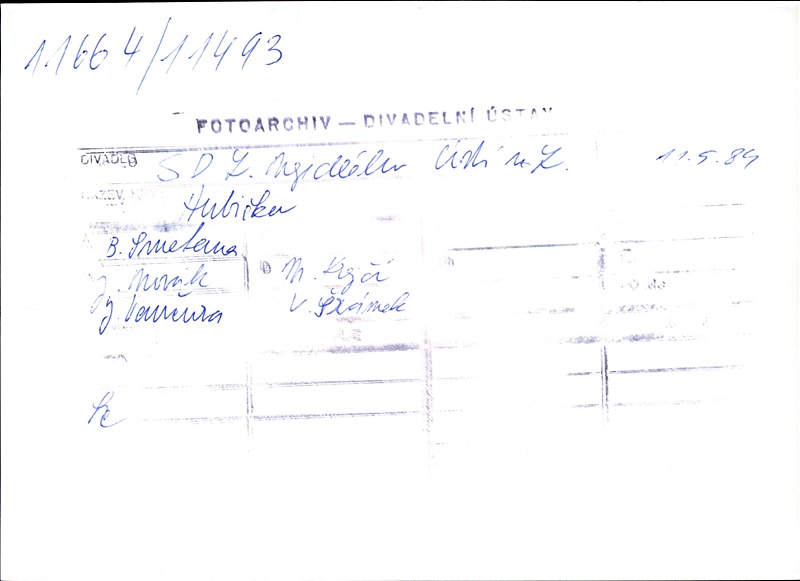 11664/11493
FOTOARCHIV — DIVADELNÍ ÚSTAV
DIVADLO SD Z. Nejedlého Ústí n. L. 11.5.89
Hubička
B. Smetana
J. Novák M. Krejčí
J. Vančura V. Šrámek